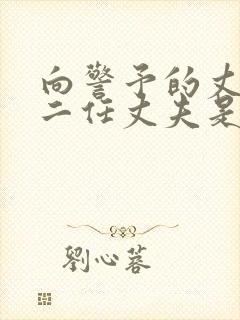 向警予的丈
二任丈夫是
劉心蓉